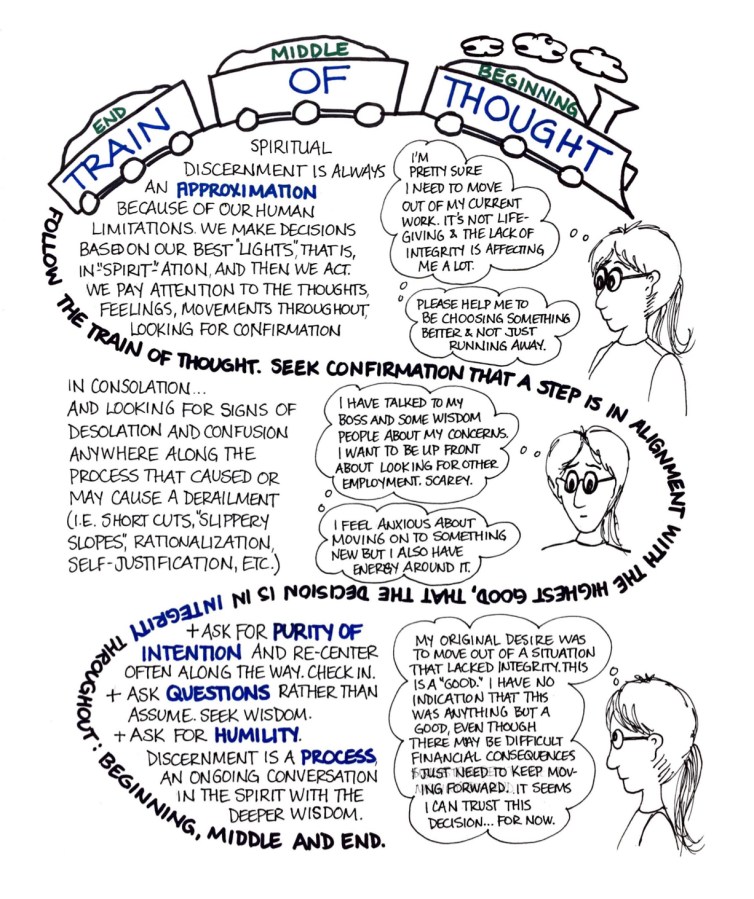 END
MIDDLE
BEGINNING
TRAIN
OF
THOUGHT
SPIRITUAL
DISCERNMENT IS ALWAYS
AN APPROXIMATION
BECAUSE OF OUR HUMAN
LIMITATIONS. WE MAKE DECISIONS
BASED ON OUR BEST "LIGHTS", THAT IS,
IN "SPIRIT" ATION, AND THEN WE ACT.
WE PAY ATTENTION TO THE THOUGHTS,
FEELINGS, MOVEMENTS THROUGHOUT,
LOOKING FOR CONFIRMATION
I'M
PRETTY SURE
I NEED TO MOVE
OUT OF MY CURRENT
WORK. IT'S NOT LIFE-
GIVING & THE LACK OF
INTEGRITY IS AFFECTING
ME A LOT.
PLEASE HELP ME TO
BE CHOOSING SOMETHING
BETTER & NOT JUST
RUNNING AWAY.
FOLLOW THE TRAIN OF THOUGHT. SEEK CONFIRMATION THAT A STEP IS IN ALIGNMENT WITH THE HIGHEST GOOD, THAT THE DECISION IS IN INTEGRITY THROUGHOUT: BEGINNING, MIDDLE AND END.
IN CONSOLATION...
AND LOOKING FOR SIGNS OF
DESOLATION AND CONFUSION
ANYWHERE ALONG THE
PROCESS THAT CAUSED OR
MAY CAUSE A DERAILMENT
(I.E. SHORT CUTS, "SLIPPERY
SLOPES", RATIONALIZATION,
SELF-JUSTIFICATION, ETC.)
I HAVE TALKED TO MY
BOSS AND SOME WISDOM
PEOPLE ABOUT MY CONCERNS.
I WANT TO BE UP FRONT
ABOUT LOOKING FOR OTHER
EMPLOYMENT. SCAREY.
I FEEL ANXIOUS ABOUT
MOVING ON TO SOMETHING
NEW BUT I ALSO HAVE
ENERGY AROUND IT.
+ ASK FOR PURITY OF
INTENTION AND RE-CENTER
OFTEN ALONG THE WAY. CHECK IN.
+ ASK QUESTIONS RATHER THAN
ASSUME. SEEK WISDOM.
+ ASK FOR HUMILITY.
DISCERNMENT IS A PROCESS,
AN ONGOING CONVERSATION
IN THE SPIRIT WITH THE
DEEPER WISDOM.
MY ORIGINAL DESIRE WAS
TO MOVE OUT OF A SITUATION
THAT LACKED INTEGRITY. THIS
IS A "GOOD." I HAVE NO
INDICATION THAT THIS
WAS ANYTHING BUT A
GOOD, EVEN THOUGH
THERE MAY BE DIFFICULT
FINANCIAL CONSEQUENCES
I JUST NEED TO KEEP MOV-
ING FORWARD. IT SEEMS
I CAN TRUST THIS
DECISION... FOR NOW.